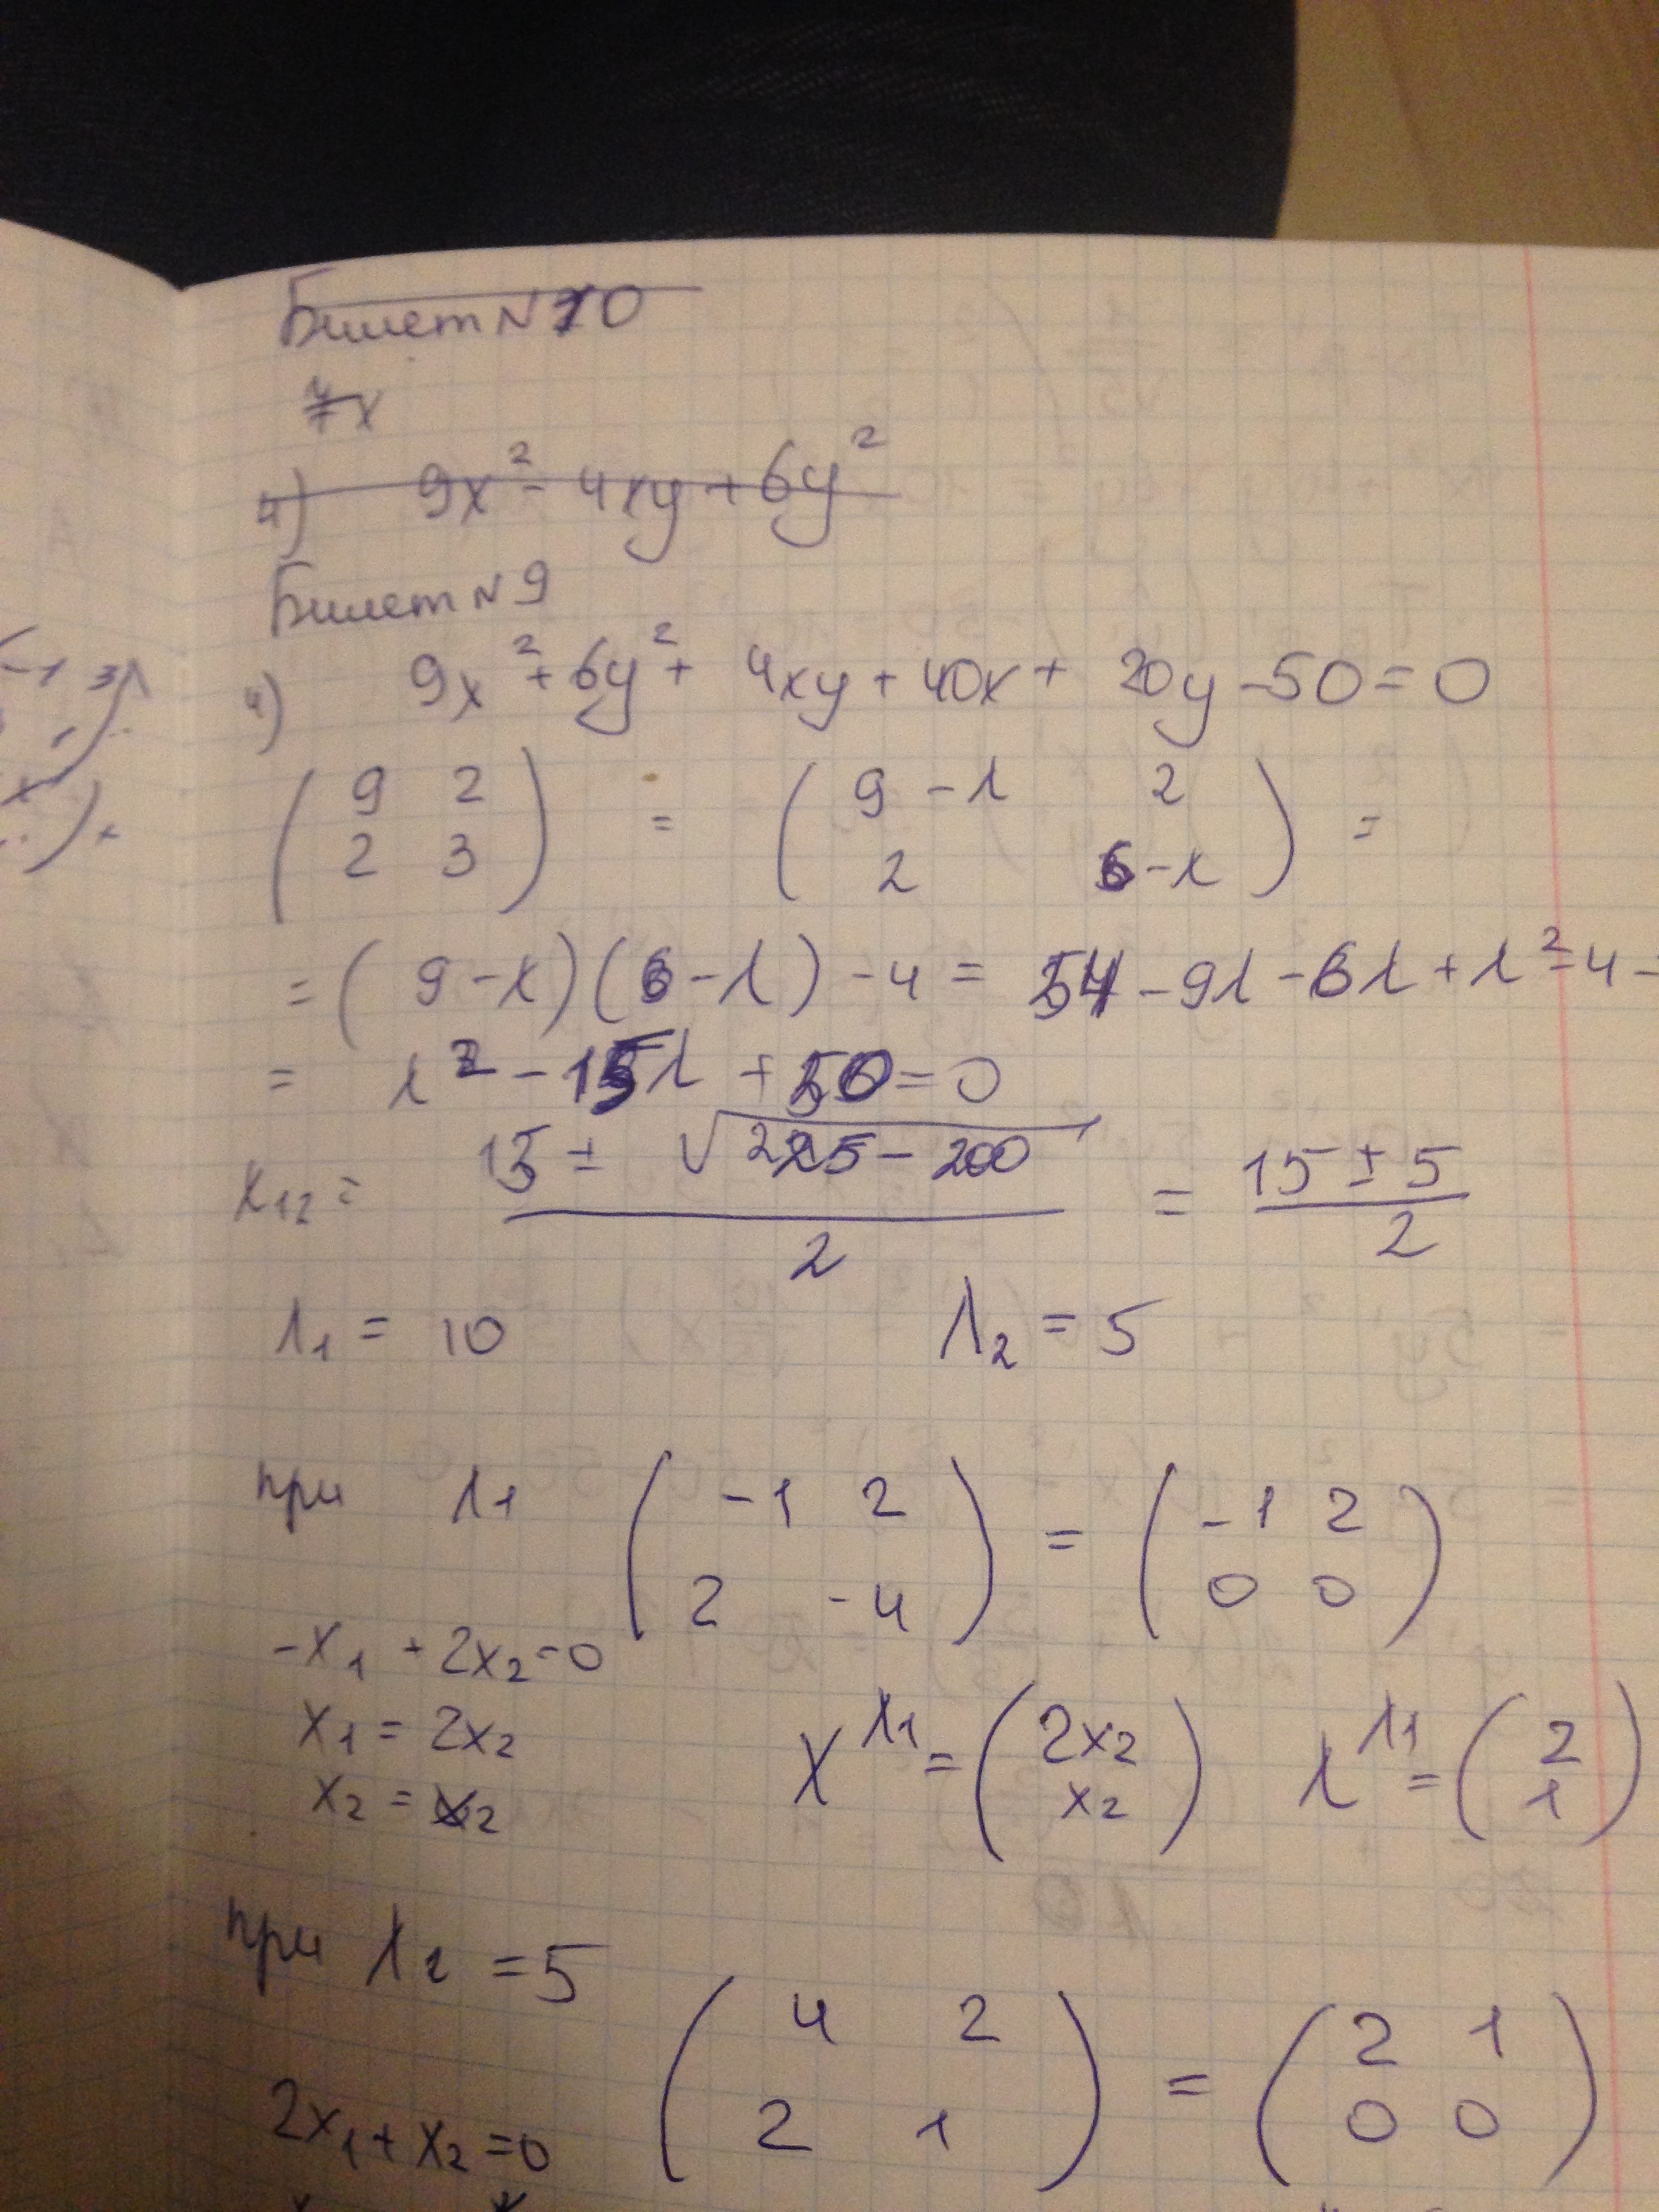 Билет N 10
7x
4) 9x² - 4xy + 6y²
Билет N 9
4) 9x² + 6y² + 4xy + 40x + 20y - 50 = 0
( 9 2 ; 2 3 ) = ( 9 - λ 2 ; 2 6 - λ ) =
= ( 9 - λ ) ( 6 - λ ) - 4 = 54 - 9λ - 6λ + λ² - 4 =
= λ² - 15λ + 50 = 0
x₁₂ = (15 ± √(225 - 200)) / 2 = (15 ± 5) / 2
λ₁ = 10 λ₂ = 5
при λ₁ ( -1 2 ; 2 -4 ) = ( -1 2 ; 0 0 )
-x₁ + 2x₂ = 0
x₁ = 2x₂ X^λ₁ = ( 2x₂ ; x₂ ) λ^λ₁ = ( 2 ; 1 )
x₂ = x₂
при λ₂ = 5 ( 4 2 ; 2 1 ) = ( 2 1 ; 0 0 )
2x₁ + x₂ = 0